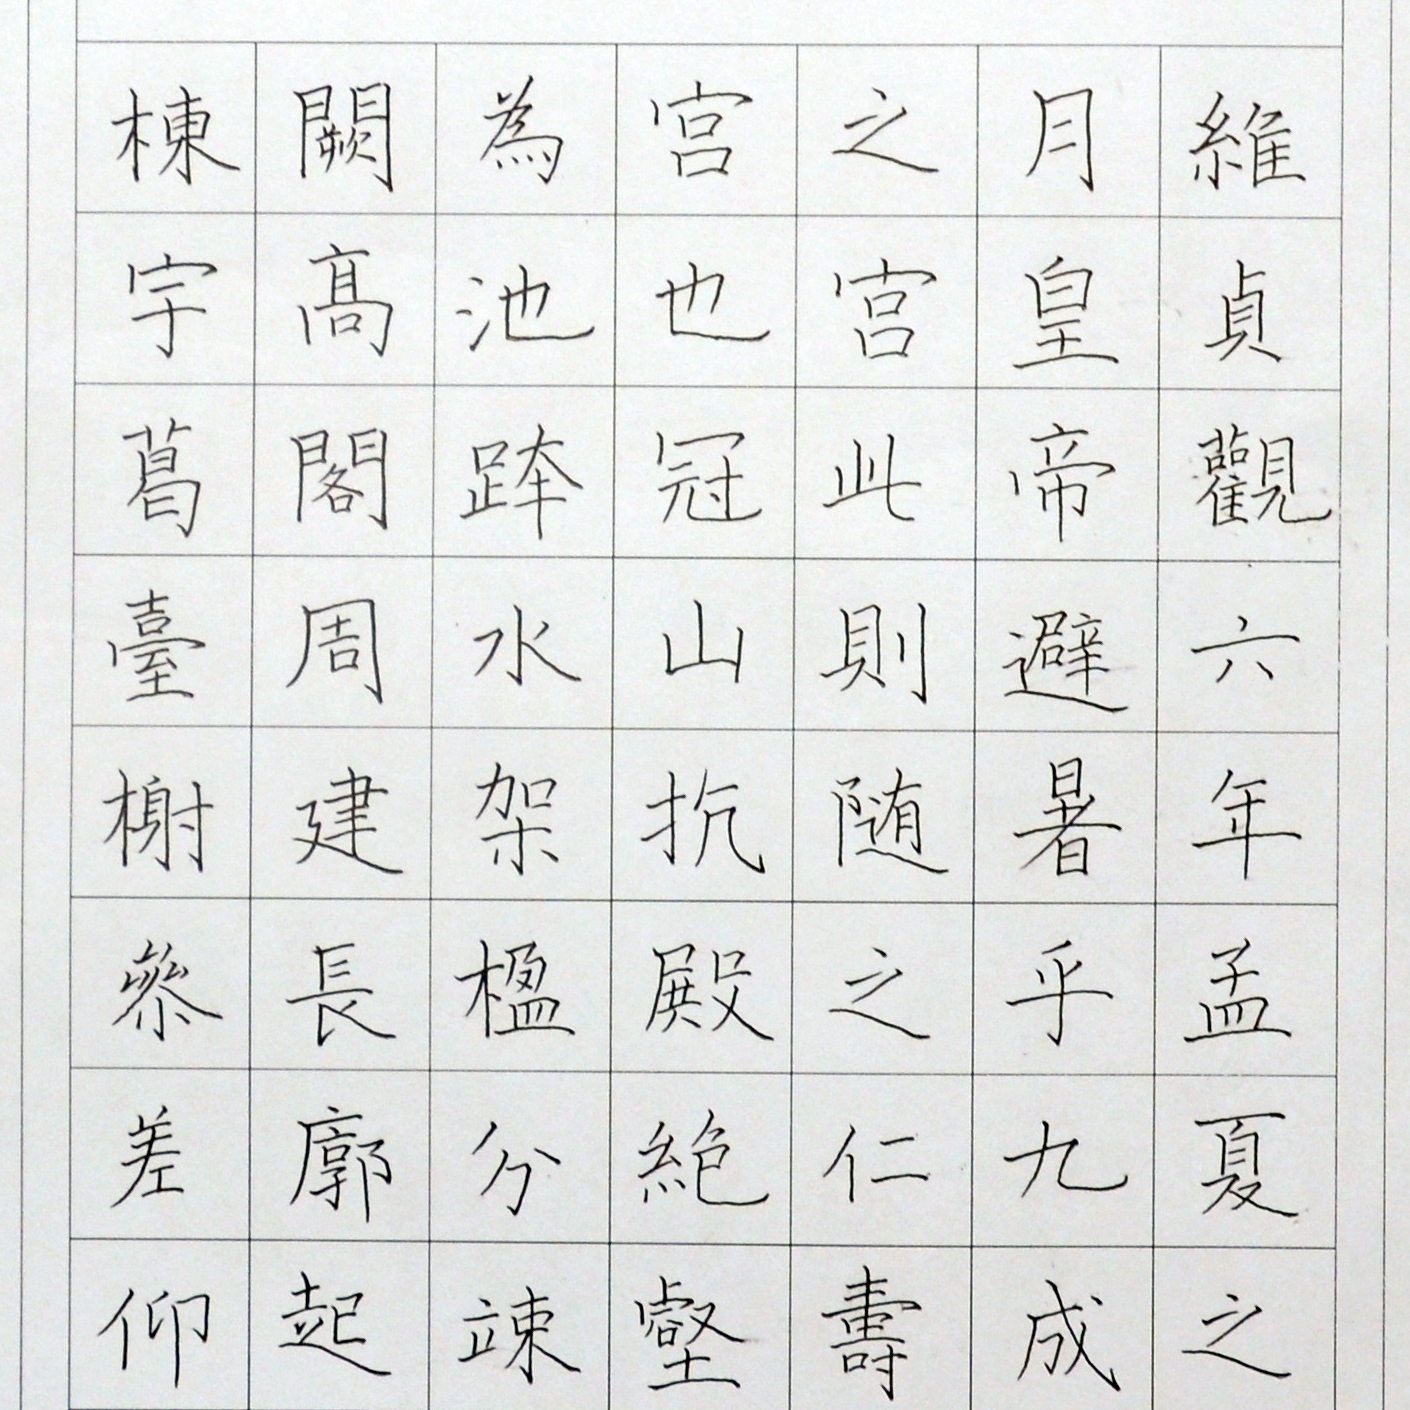 維貞觀六年孟夏之
月皇帝避暑乎九成
之宮此則随之仁壽
宮也冠山抗殿絶壑
為池跨水架楹分竦
闕高閣周建長廓起
棟宇葛臺榭叅差仰